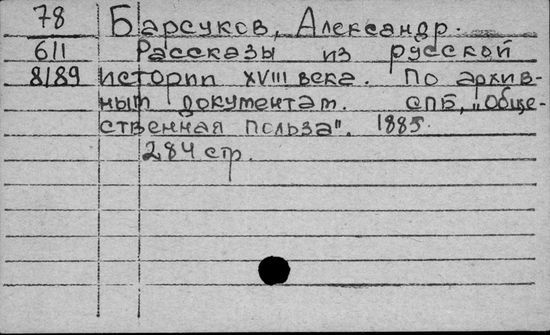 78 Барсуков, Александр.
611 Рассказы из русской
8/89 истории XVIII века. По архив-
ным документам. СПБ, „Обще-
ственная польза". 1885.
284 стр.